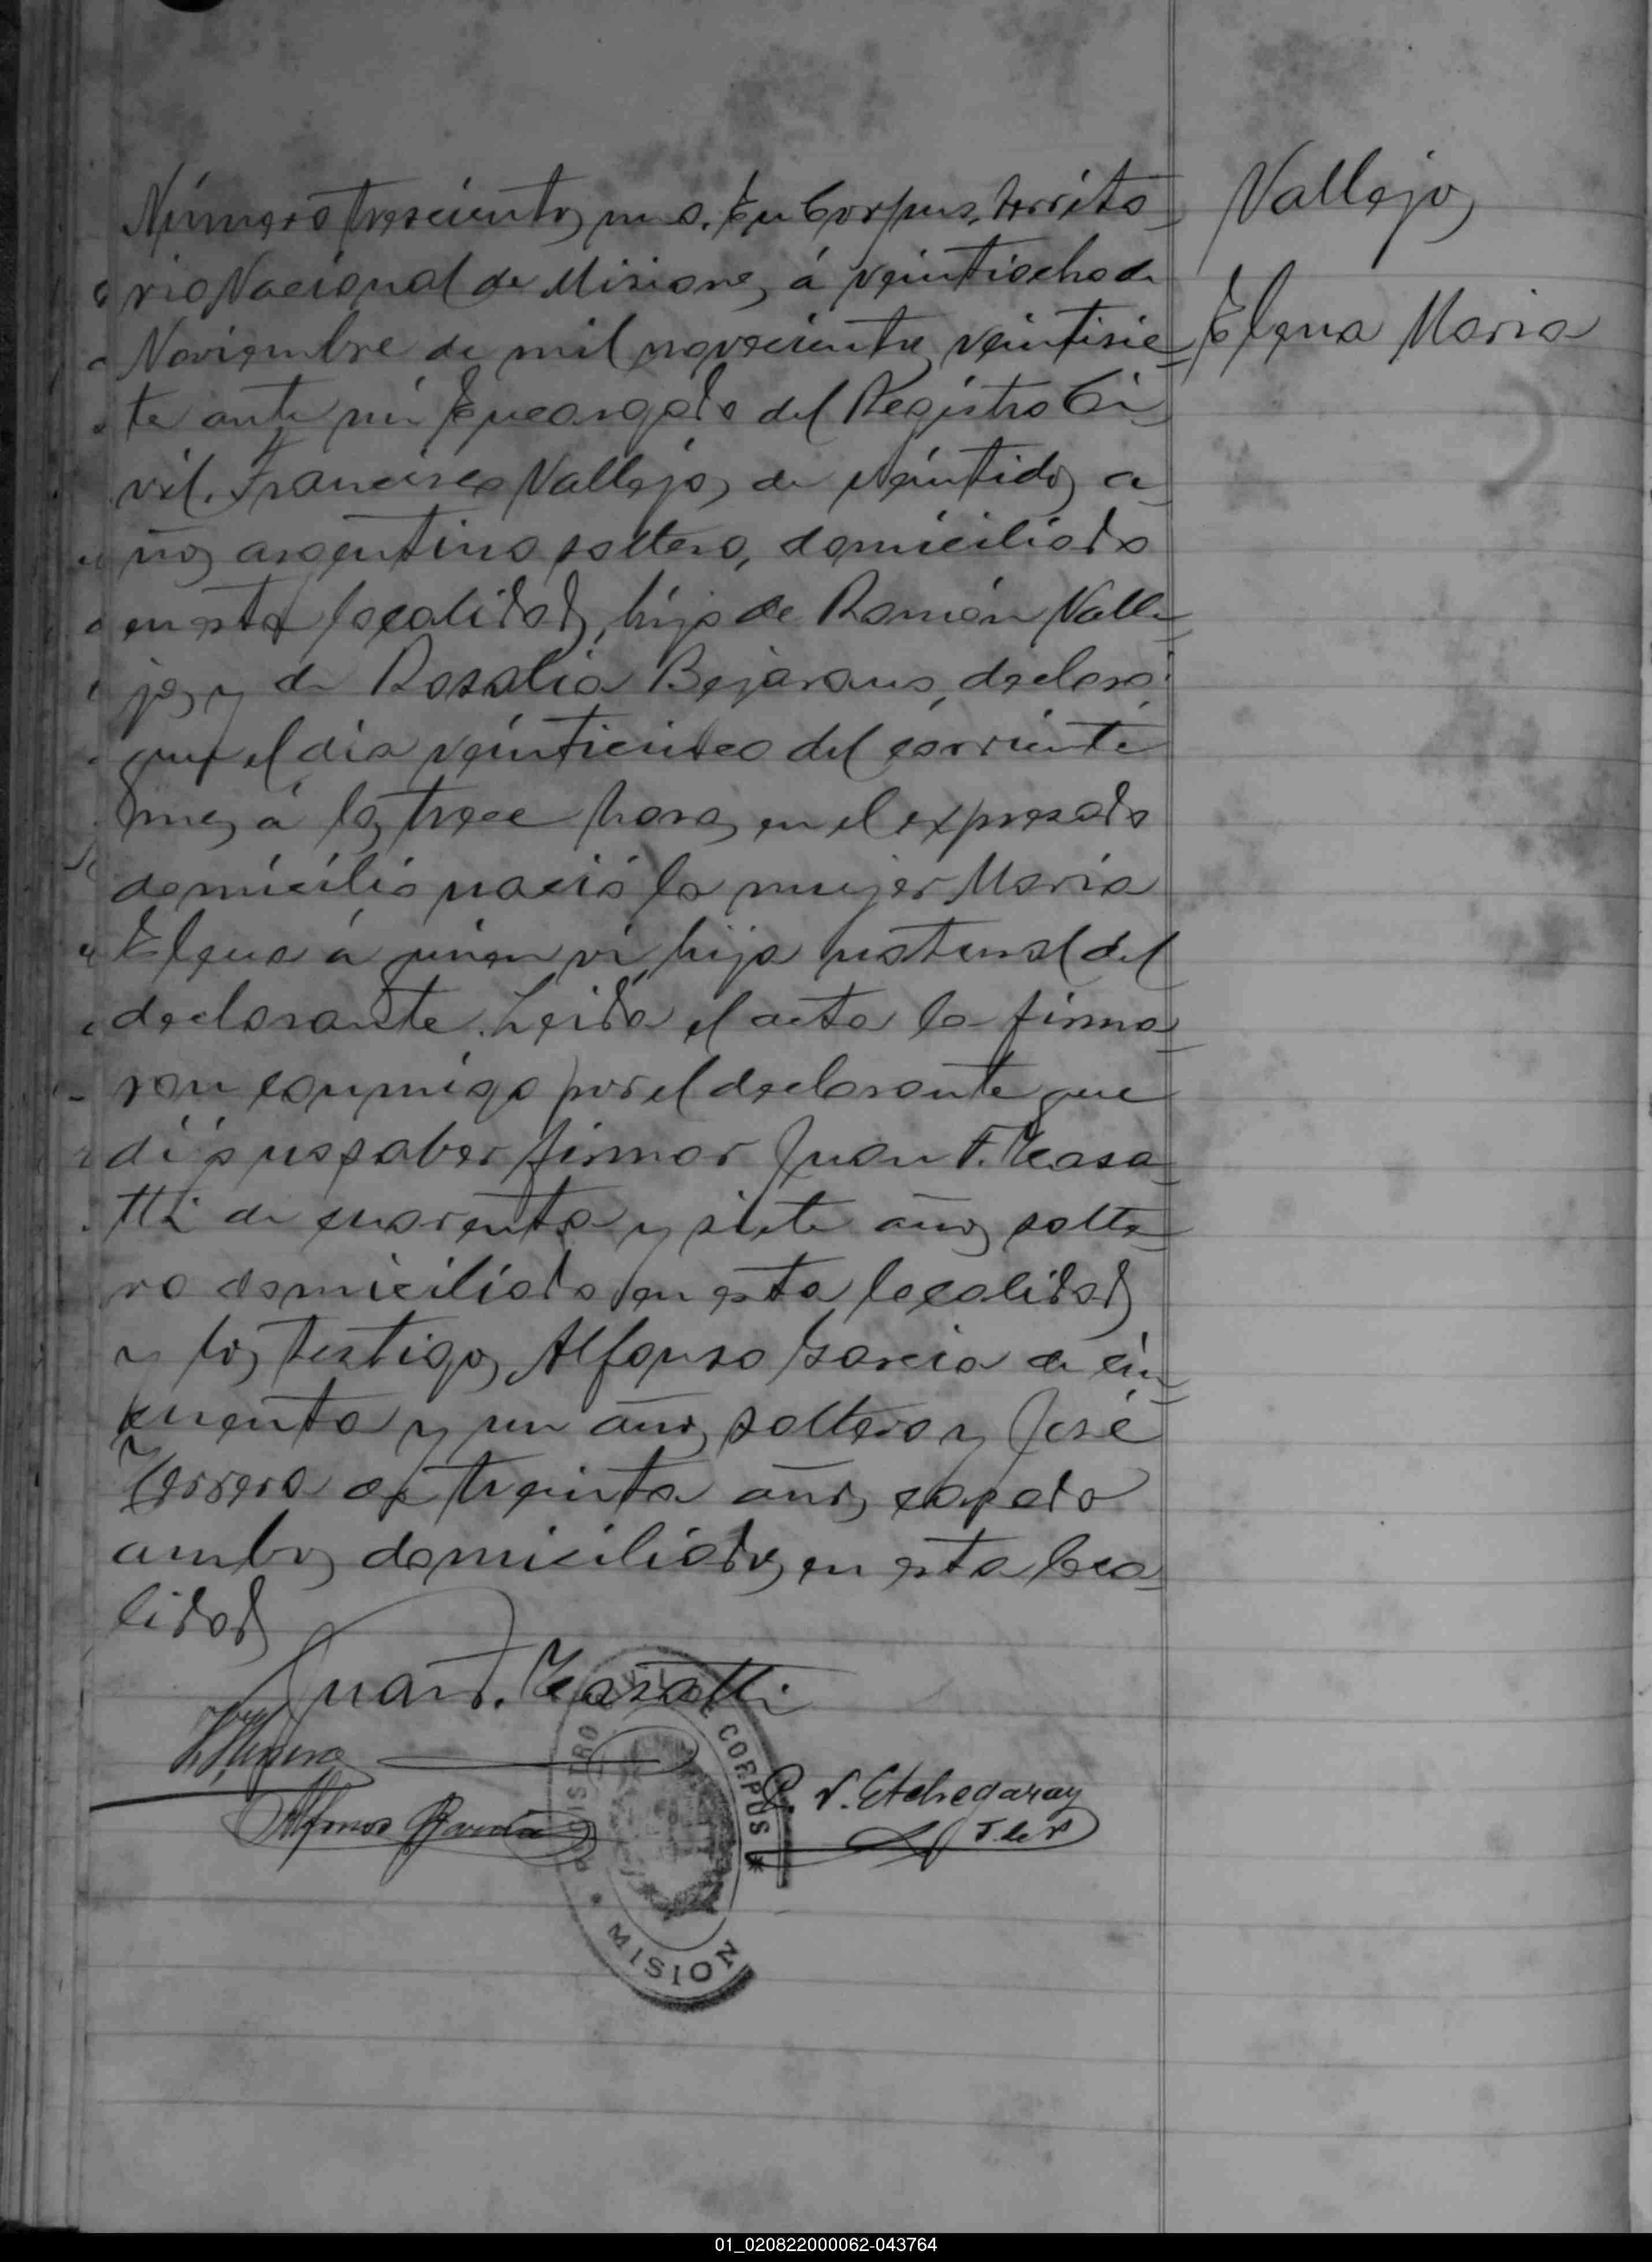 Número trescientos uno. En Corpus, territo-
rio Nacional de Misiones, á veintiocho de
Noviembre de mil novecientos veintisie-
te ante mí Encargado del Registro Ci-
vil. Francisco Vallejos, de veintidos a-
ños argentino soltero, domiciliado
en esta localidad, hijo de Ramón Valle-
jos, y de Rosalia Bejarano, declaró:
que el dia veinticinco del corriente
mes, á las trece horas, en el expresado
domicilio nació la mujer Maria
Elena á quien ví hija natural del
declarante. Leida el acta la firma-
ron conmigo por el declarante que
dijo no saber firmar Juan F.
de cuarenta y siete años, solte-
ro domiciliado en esta localidad
y los testigos, Alfonso Garcia de cin-
cuenta y un años, soltero y José
de treinta años, casado
ambos domiciliados, en esta loca-
lidad
Vallejos
Elena Maria
Juan F.
Alfonso Garcia
V. Etchegaray
J. de P
REGISTRO CORPUS * MISION
01_020822000062-043764